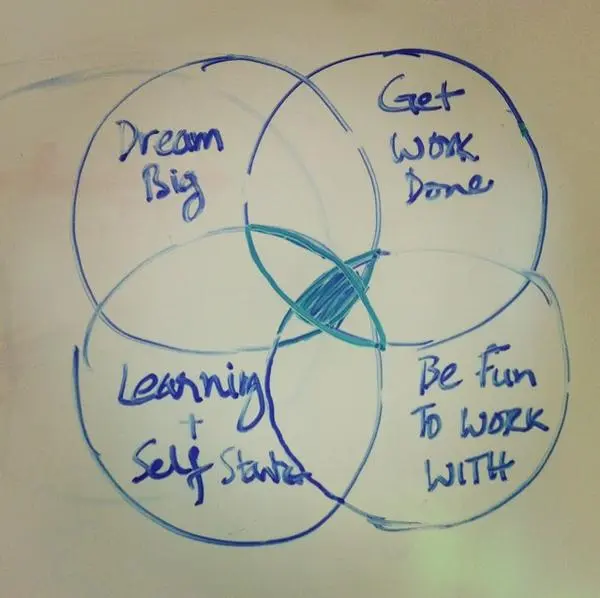 Dream
Big
Get
WORK
Done
Learning
+
Self Starter
Be Fun
TO WORK
WITH